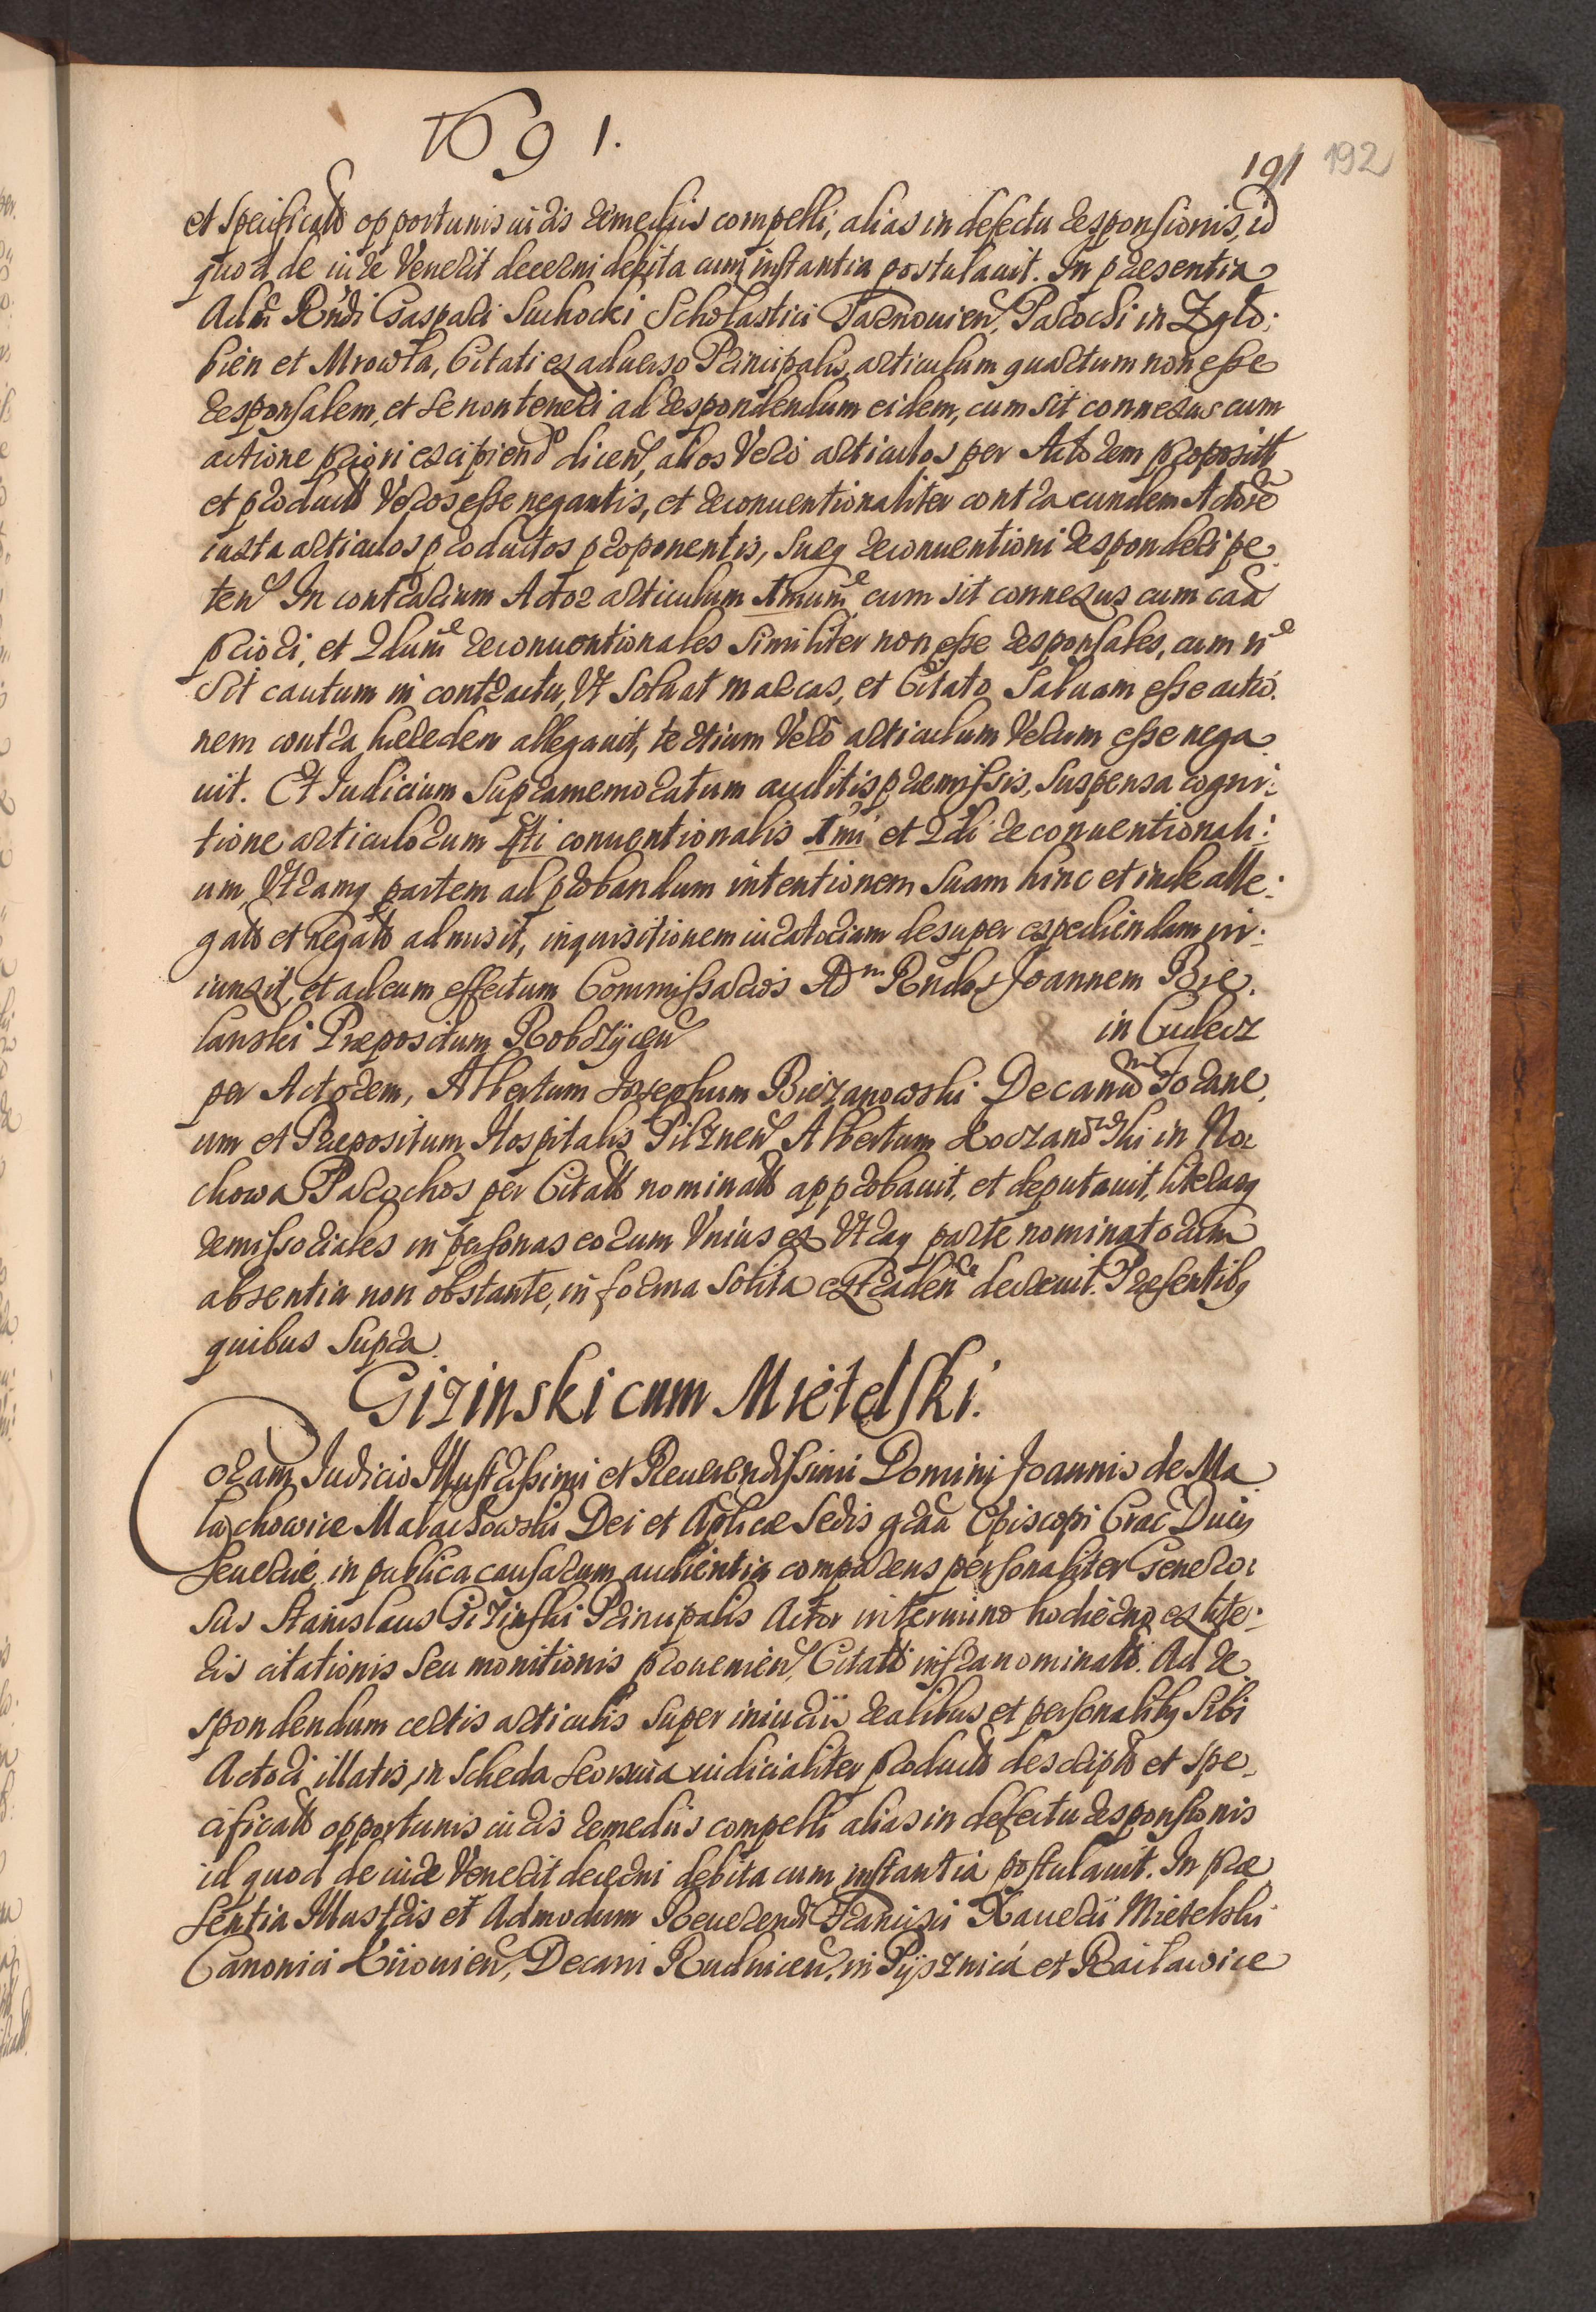 1691.
191 192
et specificatis opportunis iuris remediis compelli, alias in defectu responsionis, id
quod de iure Venerit decerni debita cum instantia postulauit. In praesentia
Adm Rndi Gaspari Suchocki Scholastici Tarnouien, Parochi in Zglo:
bien et Mrowla, Citati ex aduerso Principalis, articulum quartum non esse
responsalem, et se non teneri ad respondendum eidem, cum sit connexus cum
actione priori excipiendo dicen, alios Vero articulos per Actorem propositt
et productt Veros esse negantis, et reconuentionaliter contra eundem Actore
iuxta articulos productos proponentis, suaeq reconuentioni responderi pe
ten In contrarium Actor articulum 1mum cum sit connexus cum caa
priori, et 2dum reconuentionales similiter non esse responsales, cum n
sit cautum in contractu, Vt soluat marcas, et Citato saluam esse actio.
nem contra haeredem allegauit, tertium Vero articulum Verum esse nega
uit. Et Iudicium supramemoratum auditis praemissis, suspensa cogni:
tione articulorum 4ti conuentionalis 1mi et 2di reconuentionali:
um, Vtramq partem ad probandum intentionem suam hinc et inde alle:
gatt et negatt admisit, inquisitionem iuratoriam desuper expediendam in:
iunxit, et ad eum effectum Commissarios Adm Rndos Joannem Bie
lanski Praepositum Robczÿcen in Cudecz
per Actorem, Albertum Josephum Biezanowski Decanum Forane
um et Praepositum Hospitalis Pilznen Albertum Koczanowski in No
chowa Parochos per Citatt nominatt approbauit, et deputauit, literasq
remissoriales in personas eorum Vnius ex Vtraq parte nominatorum
absentia non obstante, in forma solita extraden decreuit. Praesentibq
quibus supra.
Gizinski cum Mietelski.
Coram Iudicio Illustrissimi et Reuerendissimi Domini Joannis de Ma
lachowice Malachowski Dei et Aplicae Sedis graa Episcopi Crac Ducis
Seueriae, in publica causarum audientia comparens personaliter Genero:
sus Stanislaus Gizinski Principalis Actor in termino hodierno ex lite:
ris citationis seu monitionis prouenien, Citatt infranominatt. Ad re
spondendum certis articulis super iniuriis realibus et personalibq sibi
Actori illatis, in scheda seorsiua iudicialiter productt descriptt et spe
cificatt opportunis iuris remediis compelli alias in defectu responsionis
id quod de iure Venerit decerni debita cum instantia postulauit. In prae
sentia Illustris et Admodum Reuerendi Francisci Xauerii Mietelski
Canonici Kiiouien, Decani Rudnicen, in Pÿsznica et Raclawice